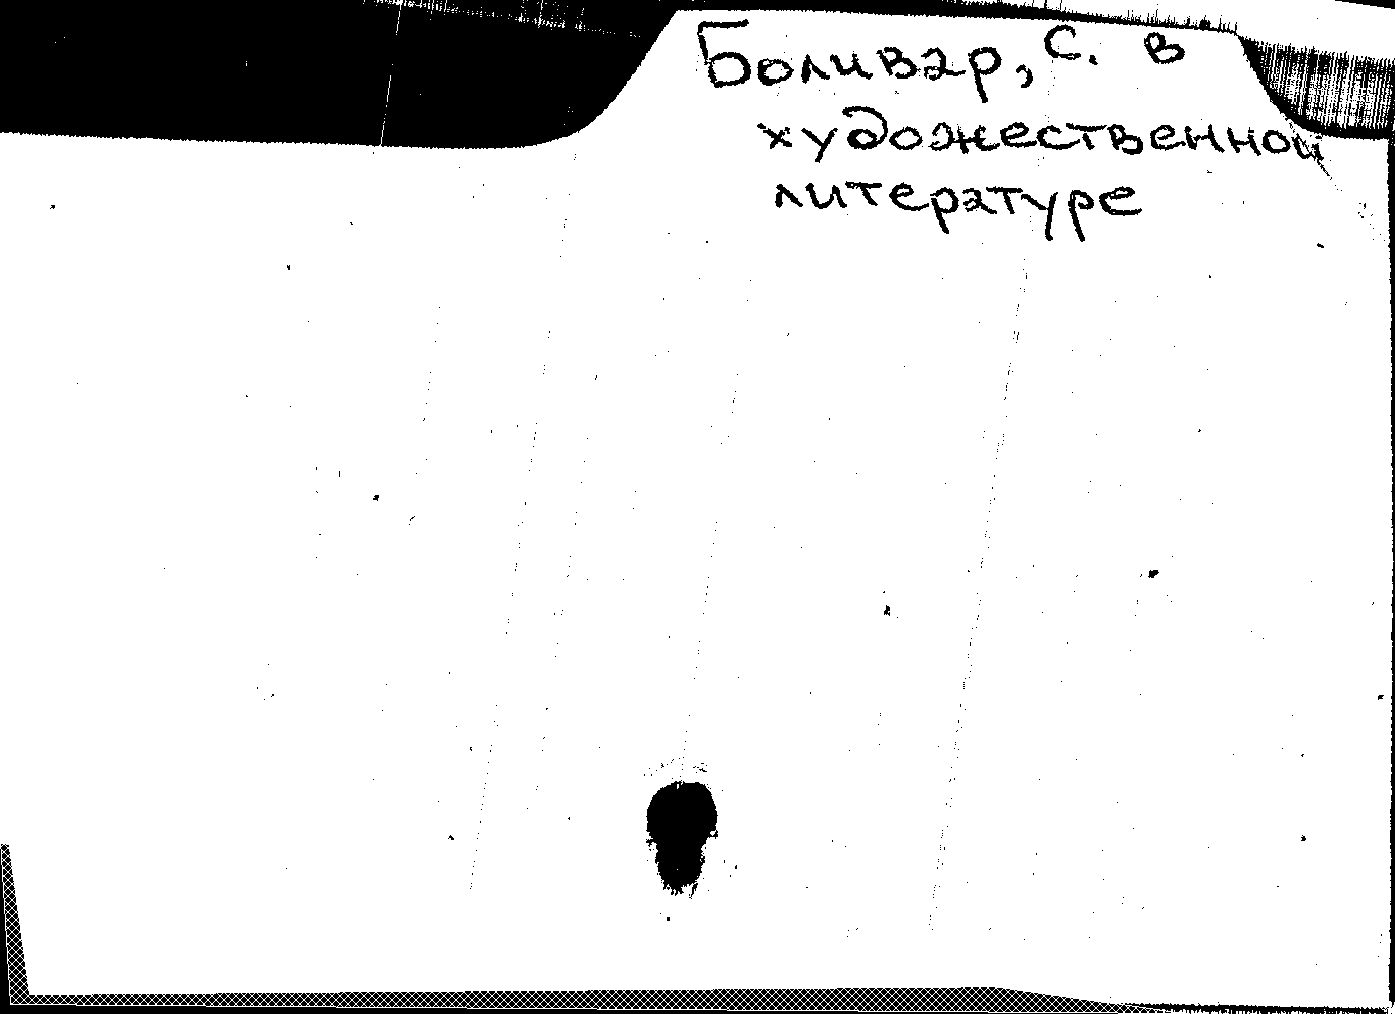 Боливар, С. в
художественной
литературе